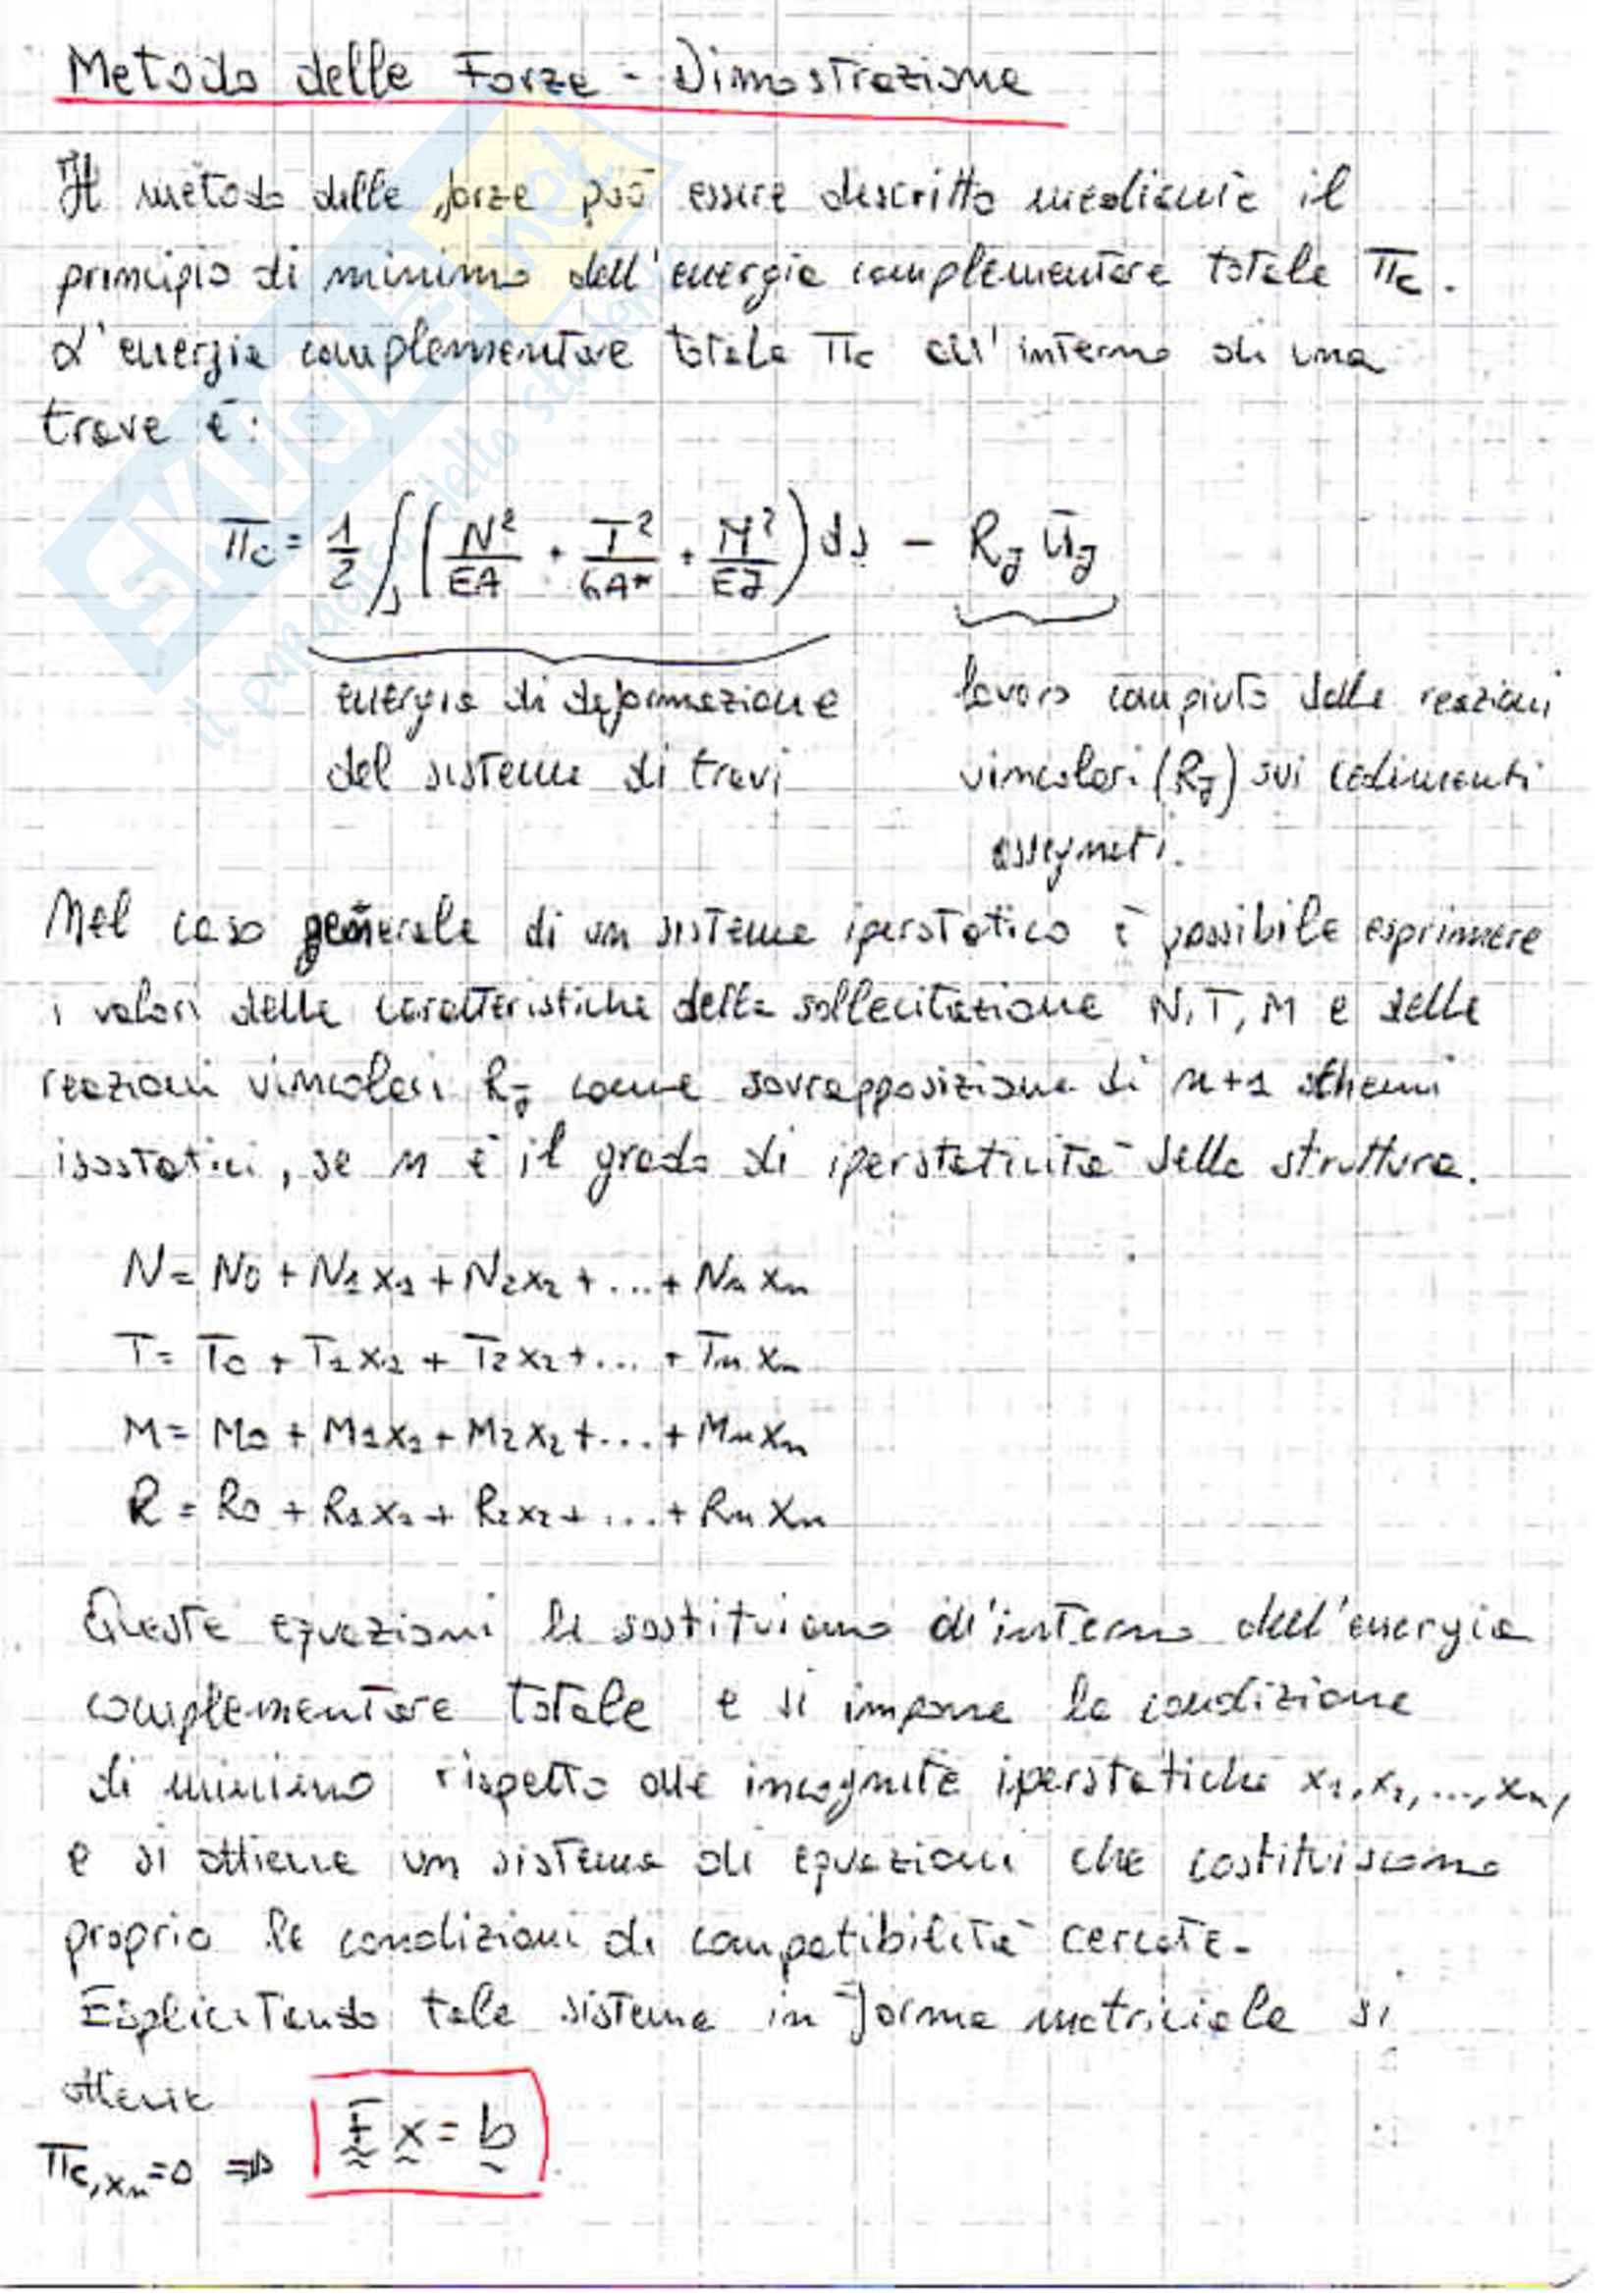 Metodo delle Forze - Dimostrazione
Il metodo delle forze può essere descritto mediante il
principio di minimo dell'energia complementare totale Πc.
L'energia complementare totale Πc all'interno di una
trave è:
Πc = 1/2 ∫s (N²/EA + T²/GA* + M²/EJ) ds - Rj ūj
energia di deformazione
del sistema di travi
lavoro compiuto dalle reazioni
vincolari (Rj) sui cedimenti
assegnati.
Nel caso generale di un sistema iperstatico è possibile esprimere
i valori delle caratteristiche della sollecitazione N, T, M e delle
reazioni vincolari Rj come sovrapposizione di n+1 schemi
isostatici, se n è il grado di iperstaticità della struttura.
N = N0 + N1 x1 + N2 x2 + ... + Nn xn
T = T0 + T1 x1 + T2 x2 + ... + Tn xn
M = M0 + M1 x1 + M2 x2 + ... + Mn xn
R = R0 + R1 x1 + R2 x2 + ... + Rn xn
Queste equazioni le sostituiamo all'interno dell'energia
complementare totale e si impone la condizione
di minimo rispetto alle incognite iperstatiche x1, x2, ..., xn,
e si ottiene un sistema di equazioni che costituiscono
proprio le condizioni di compatibilità cercate.
Esplicitando tale sistema in forma matriciale si
ottiene
Πc,xn = 0 ⇒ F x = b
SKUOLA.net
il paradiso dello studente